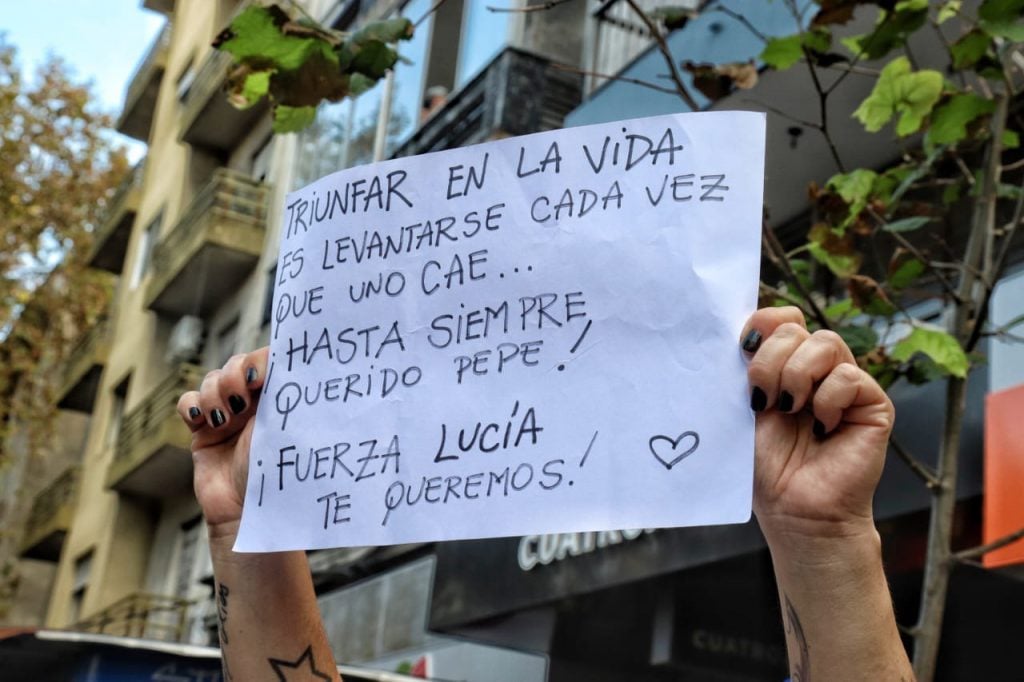 TRIUNFAR EN LA VIDA
ES LEVANTARSE CADA VEZ
QUE UNO CAE...
¡HASTA SIEMPRE
QUERIDO PEPE!
¡FUERZA LUCÍA
TE QUEREMOS!